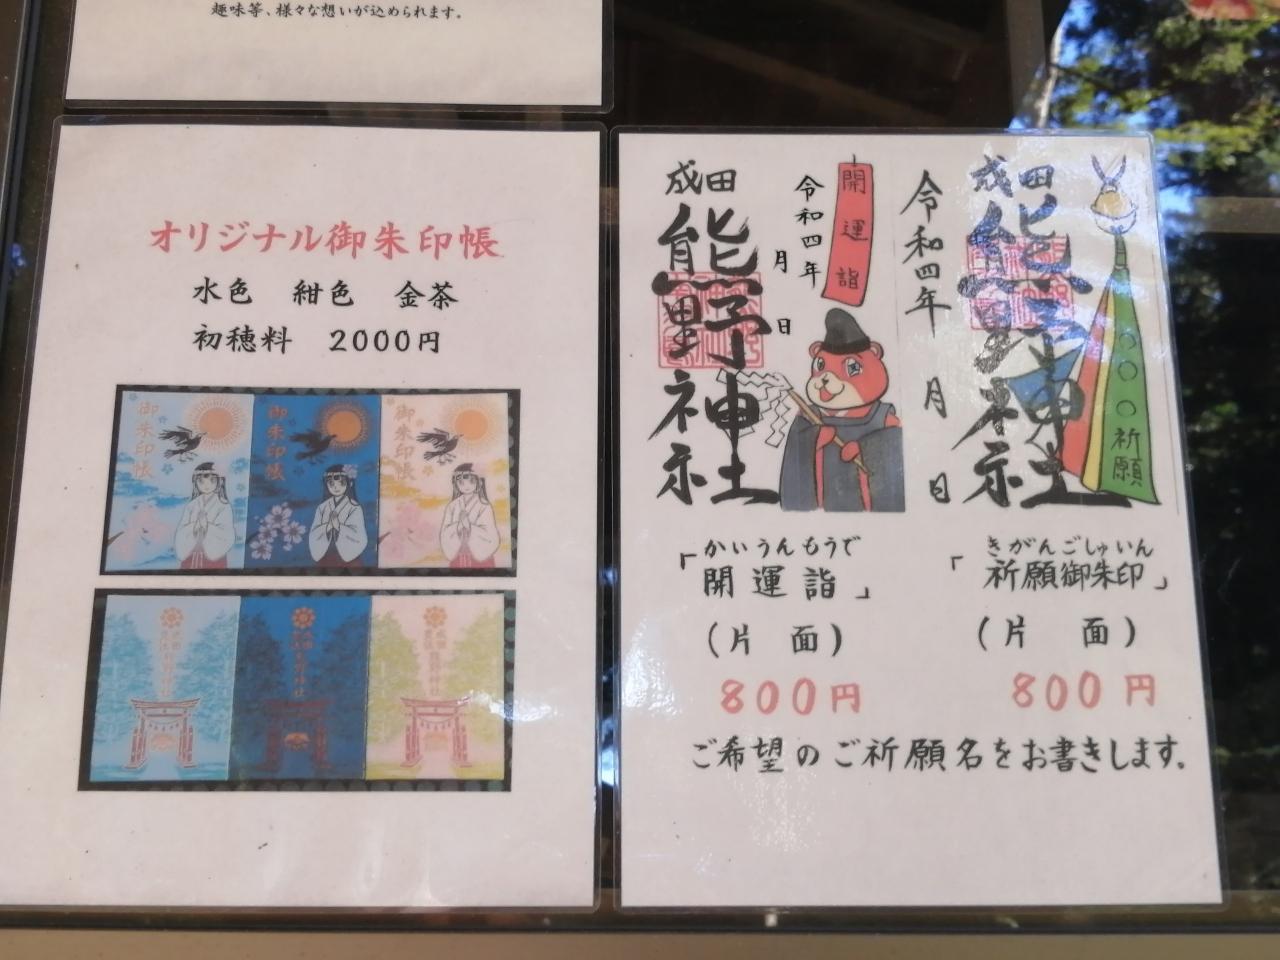 趣味等、様々な想いが込められます。
オリジナル御朱印帳
水色 紺色 金茶
初穂料 2000円
御朱印帳
御朱印帳
御朱印帳
成田
熊野神社
令和四年
月
日
開運詣
成田
熊野神社
令和四年
月
日
〇〇〇祈願
かいうんもうで
「開運詣」
(片面)
800円
きがんごしゅいん
「祈願御朱印」
(片面)
800円
ご希望のご祈願名をお書きします。